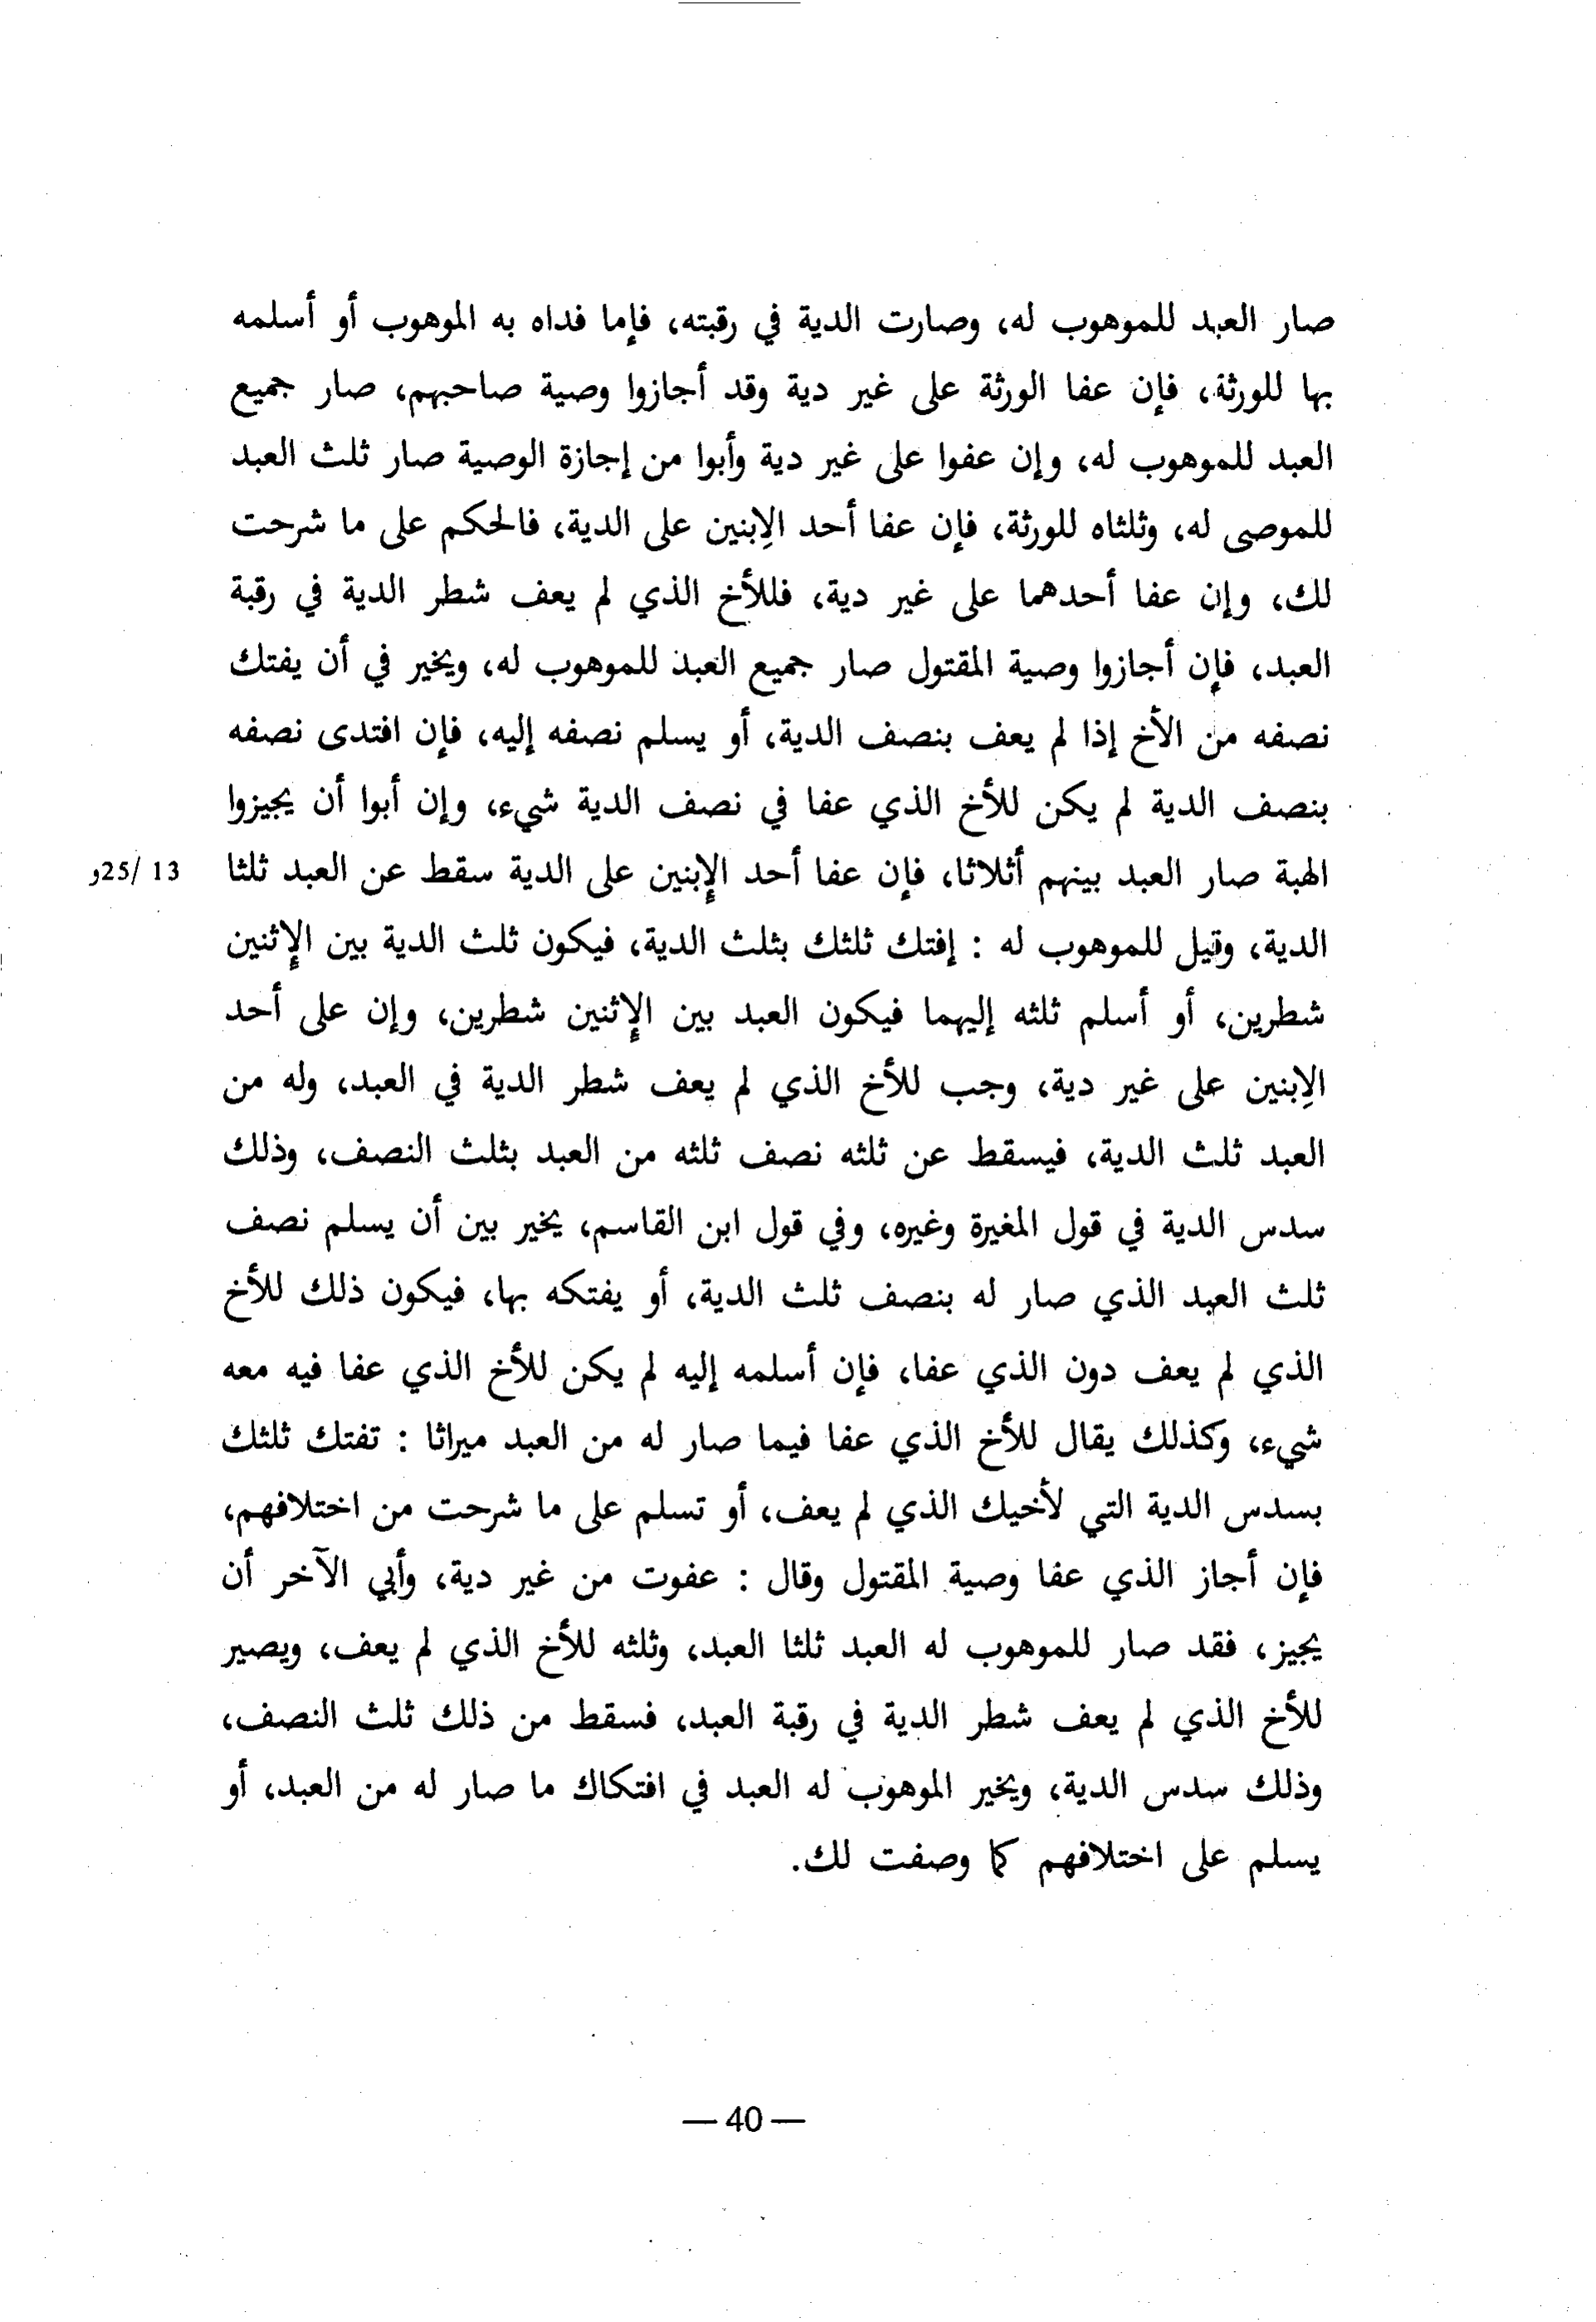 صار العبد للموهوب له، وصارت الدية في رقبته، فإما فداه به الموهوب أو أسلمه
بها للورثة، فإن عفا الورثة على غير دية وقد أجازوا وصية صاحبهم، صار جميع
العبد للموهوب له، وإن عفوا على غير دية وأبوا من إجازة الوصية صار ثلث العبد
للموصى له، وثلثاه للورثة، فإن عفا أحد الإبنين على الدية، فالحكم على ما شرحت
لك، وإن عفا أحدهما على غير دية، فللأخ الذي لم يعف شطر الدية في رقبة
العبد، فإن أجازوا وصية المقتول صار جميع العبد للموهوب له، ويخير في أن يفتك
نصفه من الأخ إذا لم يعف بنصف الدية، أو يسلم نصفه إليه، فإن افتدى نصفه
بنصف الدية لم يكن للأخ الذي عفا في نصف الدية شيء، وإن أبوا أن يجيزوا
الهبة صار العبد بينهم أثلاثا، فإن عفا أحد الإبنين على الدية سقط عن العبد ثلثا 13 /25و
الدية، وقيل للموهوب له : إفتك ثلثك بثلث الدية، فيكون ثلث الدية بين الإثنين
شطرين، أو أسلم ثلثه إليهما فيكون العبد بين الإثنين شطرين، وإن على أحد
الإبنين على غير دية، وجب للأخ الذي لم يعف شطر الدية في العبد، وله من
العبد ثلث الدية، فيسقط عن ثلثه نصف ثلثه من العبد بثلث النصف، وذلك
سدس الدية في قول المغيرة وغيره، وفي قول ابن القاسم، يخير بين أن يسلم نصف
ثلث العبد الذي صار له بنصف ثلث الدية، أو يفتكه بها، فيكون ذلك للأخ
الذي لم يعف دون الذي عفا، فإن أسلمه إليه لم يكن للأخ الذي عفا فيه معه
شيء، وكذلك يقال للأخ الذي عفا فيما صار له من العبد ميراثا : تفتك ثلثك
بسدس الدية التي لأخيك الذي لم يعف، أو تسلم على ما شرحت من اختلافهم،
فإن أجاز الذي عفا وصية المقتول وقال : عفوت من غير دية، وأبي الآخر أن
يجيز، فقد صار للموهوب له العبد ثلثا العبد، وثلثه للأخ الذي لم يعف، ويصير
للأخ الذي لم يعف شطر الدية في رقبة العبد، فسقط من ذلك ثلث النصف،
وذلك سدس الدية، ويخير الموهوب له العبد في افتكاك ما صار له من العبد، أو
يسلم على اختلافهم كما وصفت لك.
— 40 —